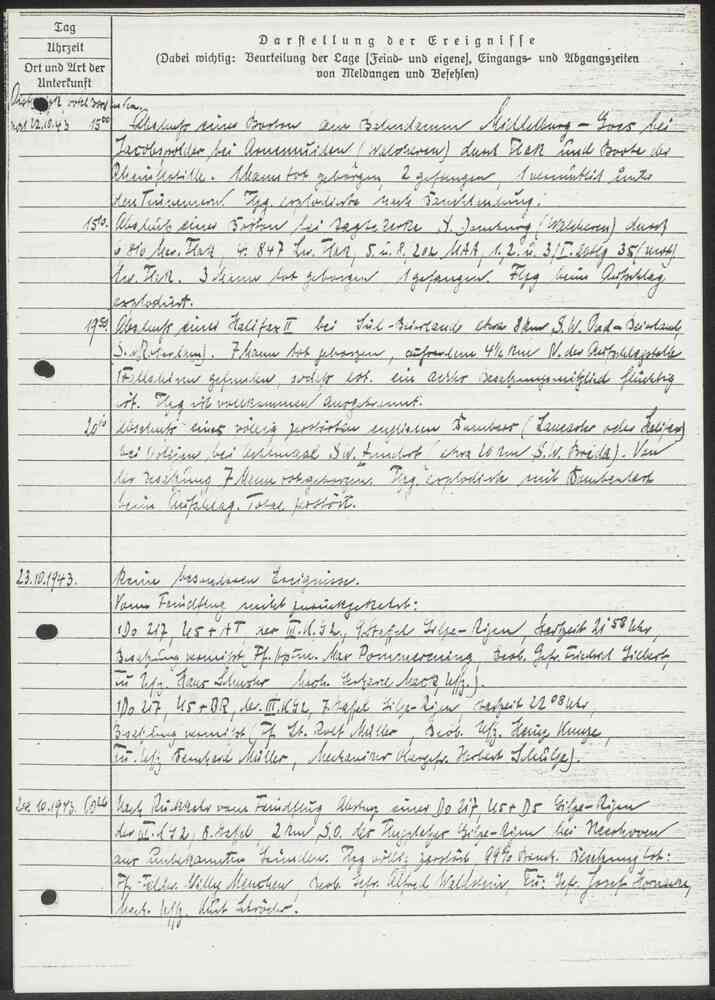 Tag
Uhrzeit
Ort und Art der
Unterkunft
Darstellung der Ereignisse
(Dabei wichtig: Beurteilung der Lage [Feind- und eigene], Eingangs- und Abgangszeiten
von Meldungen und Befehlen)
noch 22.10.43 15⁰⁰ Abschuß eines Boston am Bahndamm Middelburg – Goes bei
bei Arnemuiden (Walcheren) durch Flak und Boote der
Rheinflottille. 1 Mann tot geborgen, 2 gefangen, 1 vermutlich unter
den Trümmern. Flzg. explodierte nach
Abschuß eines Boston bei N. Domburg (Walcheren) durch
6./810 Flak, 4./847 Flak, 5. u. 8./202 MAA, 1., 2. u. 3./I.
Flak. 3 Mann tot geborgen, 1 gefangen. Flzg. beim Aufschlag
explodiert.
19⁵⁰ Abschuß eines Halifax II bei Süd-Beierland etwa 8 km S.W. Oud-Beierland,
S. 7 Mann tot geborgen, außerdem 4½ km N. der Aufschlagstelle
1 Fallschirm gefunden, sodaß evt. ein achtes Besatzungsmitglied flüchtig
ist. Flzg. ist vollkommen ausgebrannt.
Abschuß eines völlig zerstörten englischen Bombers (Lancaster oder Halifax)
bei bei Achtmaal S.W. (etwa 20 km S.W. Breda). Von
der Besatzung 7 Mann tot geborgen. Flzg. explodierte mit Bombenlast
beim Aufschlag. Total zerstört.
23.10.1943. Keine besonderen Ereignisse.
Vom Feindflug nicht zurückgekehrt:
1 Do 217, U5 + AT, der III./K.G. 2, 9. Staffel Gilze-Rijen, Startzeit 21⁵⁸ Uhr,
Besatzung vermißt, Ff. Hptm. Max Pommerening, Beob. Gefr. Friedrich
Fu. Uffz. Hans Schuster, Mech. Gerhard Uffz.).
1 Do 217, U5 + DR, der III./KG 2, 7. Staffel Gilze-Rijen, Startzeit 22⁰⁸ Uhr,
Besatzung vermißt, Ff. Lt. Rolf Müller, Beob. Uffz. Heinz Kunze,
Fu. Uffz. Bernhard Müller, Mechaniker Obergefr. Herbert Schulze).
24.10.1943. Nach Rückkehr vom Feindflug Absturz eines Do 217, U5 + DS Gilze-Rijen
der III./KG 2, 8. Staffel, 2 km S.O. des Flugplatzes Gilze-Rijen bei Neerhoven
aus unbekannten Gründen. Flzg. völlig zerstört, 99% Bruch. Besatzung tot:
Ff. Feldw. Willy Menchen, Beob. Gefr. Alfred Wallstein, Fu: Gefr. Josef
Mech. Uffz. Kurt Schröder.